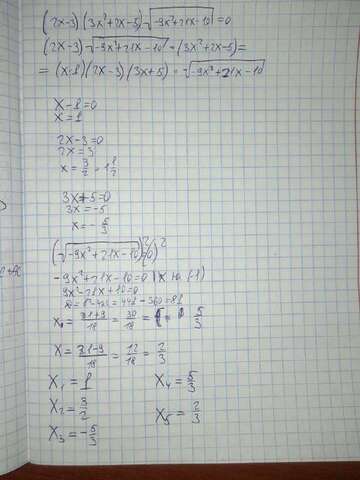 (2x-3)(3x²+2x-5)√-9x²+21x-10=0
(2x-3)√-9x²+21x-10 · (3x²+2x-5)=
= (x-1)(2x-3)(3x+5)·√-9x²+21x-10
x-1=0
x=1
2x-3=0
2x=3
x=3/2=1 1/2
3x+5=0
3x=-5
x=-5/3
(√-9x²+21x-10)²=(0)²
-9x²+21x-10=0 | × на (-1)
9x²-21x+10=0
D=b²-4ac=441-360=81
x=21+9/18=30/18= 5/3
x=21-9/18=12/18=2/3
x₁=1 x₄=5/3
x₂=3/2 x₅=2/3
x₃=-5/3